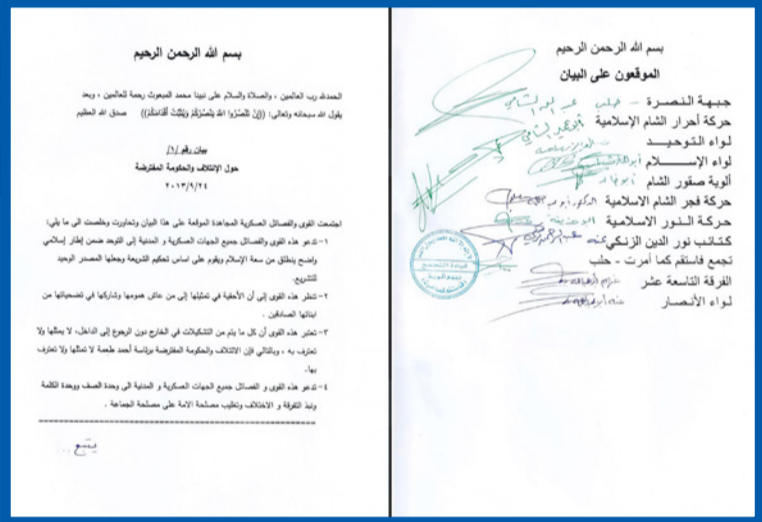 بسم الله الرحمن الرحيم
الحمدلله رب العالمين ، والصلاة والسلام على نبينا محمد المبعوث رحمة للعالمين ، وبعد
يقول الله سبحانه وتعالى: ((إِنْ تَنْصُرُوا اللهَ يَنْصُرْكُمْ وَيُثَبِّتْ أَقْدَامَكُمْ)) صدق الله العظيم
بيان رقم /١/
حول الإئتلاف والحكومة المفترضة
٢٠١٣/٩/٢٤
اجتمعت القوى والفصائل العسكرية المجاهدة الموقعة على هذا البيان وتحاورت وخلصت الى ما يلي:
١- تدعو هذه القوى والفصائل جميع الجهات العسكرية و المدنية إلى التوحد ضمن إطار إسلامي
واضح ينطلق من سعة الإسلام ويقوم على اساس تحكيم الشريعة وجعلها المصدر الوحيد
للتشريع.
٢- تنظر هذه القوى إلى أن الأحقية في تمثيلها إلى من عاش همومها وشاركها في تضحياتها من
ابنائها الصادقين .
٣- تعتبر هذه القوى أن كل ما يتم من التشكيلات في الخارج دون الرجوع إلى الداخل، لا يمثلها ولا
تعترف به ، وبالتالي فإن الائتلاف والحكومة المفترضة برئاسة أحمد طعمة لا تمثلها ولا تعترف
بها.
٤- تدعو هذه القوى و الفصائل جميع الجهات العسكرية و المدنية الى وحدة الصف ووحدة الكلمة
ونبذ التفرقة و الاختلاف وتغليب مصلحة الامة على مصلحة الجماعة .
يتبع ...
بسم الله الرحمن الرحيم
الموقعون على البيان
جبهة النصرة - حلب
حركة أحرار الشام الإسلامية
لواء التوحيد
لواء الإسلام
ألوية صقور الشام
حركة فجر الشام الاسلامية
حركة النور الاسلامية
كتائب نور الدين الزنكي
تجمع فاستقم كما أمرت - حلب
الفرقة التاسعة عشر
لواء الأنصار